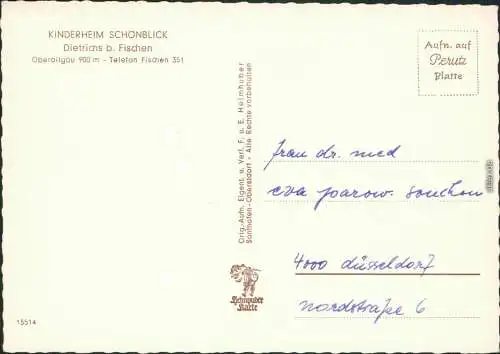 KINDERHEIM SCHÖNBLICK
Dietrichs b. Fischen
Oberallgäu 900 m - Telefon Fischen 351
Aufn. auf
Perutz
Platte
Orig.-Aufn. Eigent. u. Verl. F. u. E. Heimhuber
Sonthofen-Oberstdorf • Alle Rechte vorbehalten
frau dr. med
eva parow. souchon
4000 düsseldorf
nordstraße 6
Heimhuber
Karte
15514